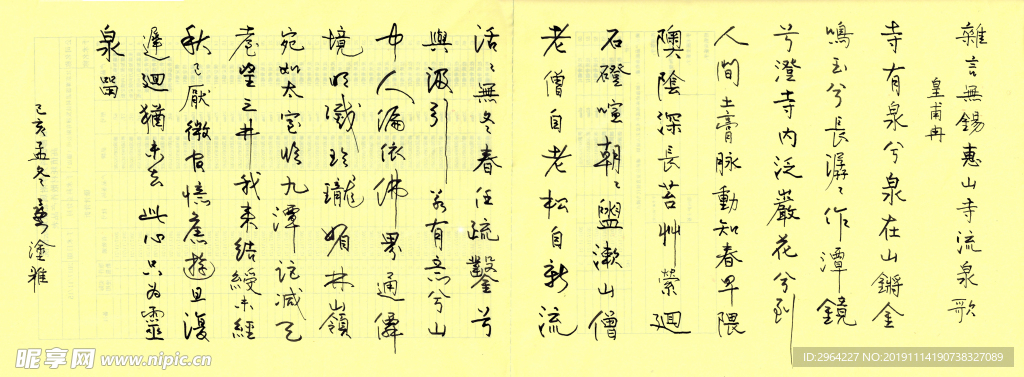 雜言無錫惠山寺流泉歌
皇甫冉
寺有泉兮泉在山鏘金
鳴玉兮長潺〻作潭鏡
兮澄寺内泛巖花兮到
人間土膏脉動知春早隈
隩陰深長苔草縈迴
石磴喧朝〻盥漱山僧
老僧自老松自新流
活〻無冬春任疏鑿兮
與汲引若有意兮山
中人偏依佛界通僊
境明滅玲瓏媚林嶺
宛如太室臨九潭詎減天
台望三井我來結綬未經
秋已厭微官憶舊遊且復
遲迴猶未去此心只為靈
泉留
己亥孟冬 塗雅
昵享网 www.nipic.cn
ID:2964227 NO:20191114190738327089